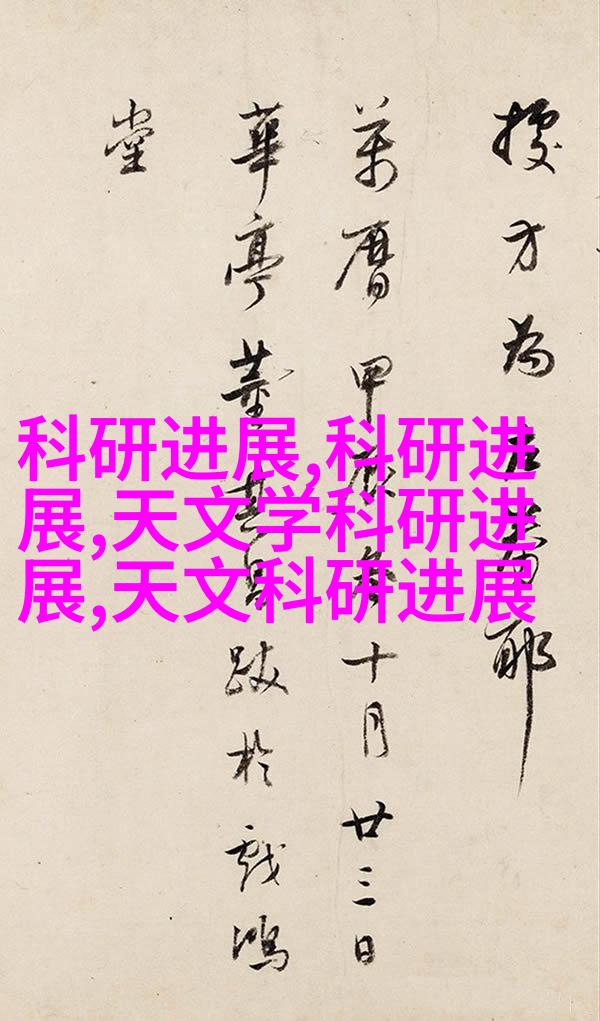 科研进展,科研进
展,天文学科研进
展,天文科研进展
方為
耶
萬曆甲辰冬十月廿三日
華亭董其昌跋於戲鴻
堂